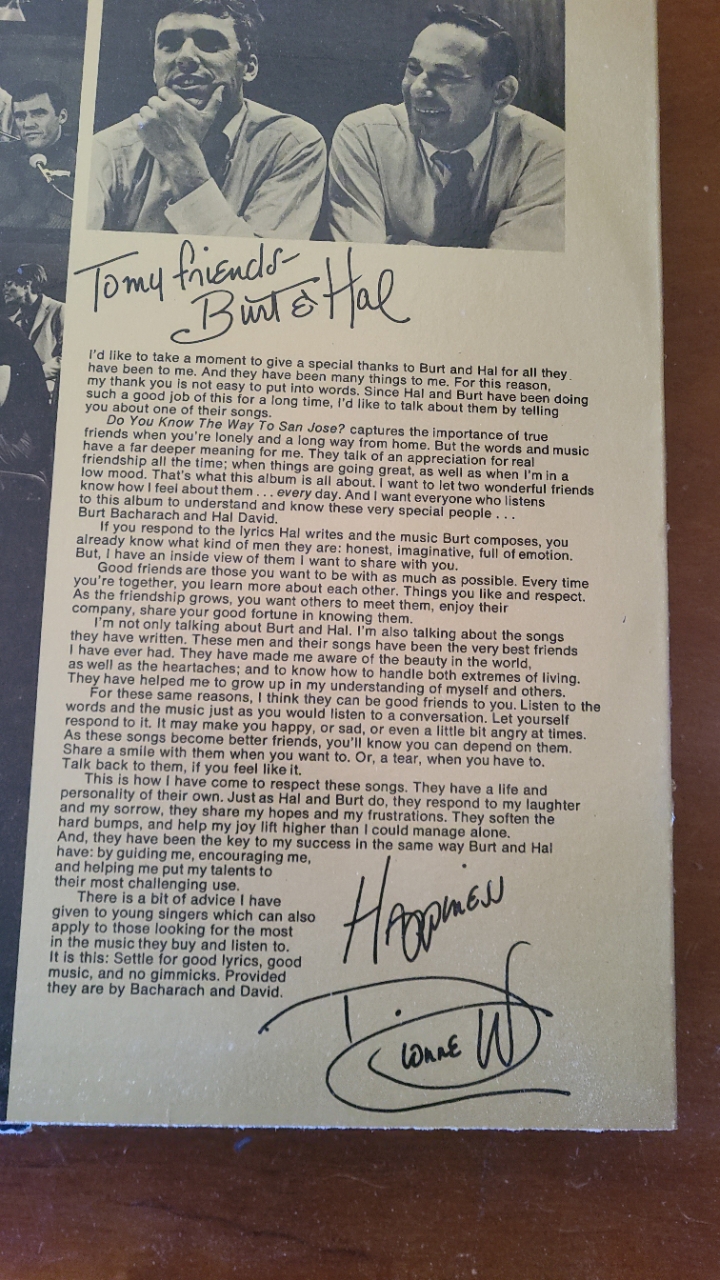 To my friends-
Burt & Hal
I'd like to take a moment to give a special thanks to Burt and Hal for all they
have been to me. And they have been many things to me. For this reason,
my thank you is not easy to put into words. Since Hal and Burt have been doing
such a good job of this for a long time, I'd like to talk about them by telling
you about one of their songs.
Do You Know The Way To San Jose? captures the importance of true
friends when you're lonely and a long way from home. But the words and music
have a far deeper meaning for me. They talk of an appreciation for real
friendship all the time; when things are going great, as well as when I'm in a
low mood. That's what this album is all about. I want to let two wonderful friends
know how I feel about them . . . every day. And I want everyone who listens
to this album to understand and know these very special people . . .
Burt Bacharach and Hal David.
If you respond to the lyrics Hal writes and the music Burt composes, you
already know what kind of men they are: honest, imaginative, full of emotion.
But, I have an inside view of them I want to share with you.
Good friends are those you want to be with as much as possible. Every time
you're together, you learn more about each other. Things you like and respect.
As the friendship grows, you want others to meet them, enjoy their
company, share your good fortune in knowing them.
I'm not only talking about Burt and Hal. I'm also talking about the songs
they have written. These men and their songs have been the very best friends
I have ever had. They have made me aware of the beauty in the world,
as well as the heartaches; and to know how to handle both extremes of living.
They have helped me to grow up in my understanding of myself and others.
For these same reasons, I think they can be good friends to you. Listen to the
words and the music just as you would listen to a conversation. Let yourself
respond to it. It may make you happy, or sad, or even a little bit angry at times.
As these songs become better friends, you'll know you can depend on them.
Share a smile with them when you want to. Or, a tear, when you have to.
Talk back to them, if you feel like it.
This is how I have come to respect these songs. They have a life and
personality of their own. Just as Hal and Burt do, they respond to my laughter
and my sorrow, they share my hopes and my frustrations. They soften the
hard bumps, and help my joy lift higher than I could manage alone.
And, they have been the key to my success in the same way Burt and Hal
have: by guiding me, encouraging me,
and helping me put my talents to
their most challenging use.
There is a bit of advice I have
given to young singers which can also
apply to those looking for the most
in the music they buy and listen to.
It is this: Settle for good lyrics, good
music, and no gimmicks. Provided
they are by Bacharach and David.
Happiness
Dionne W